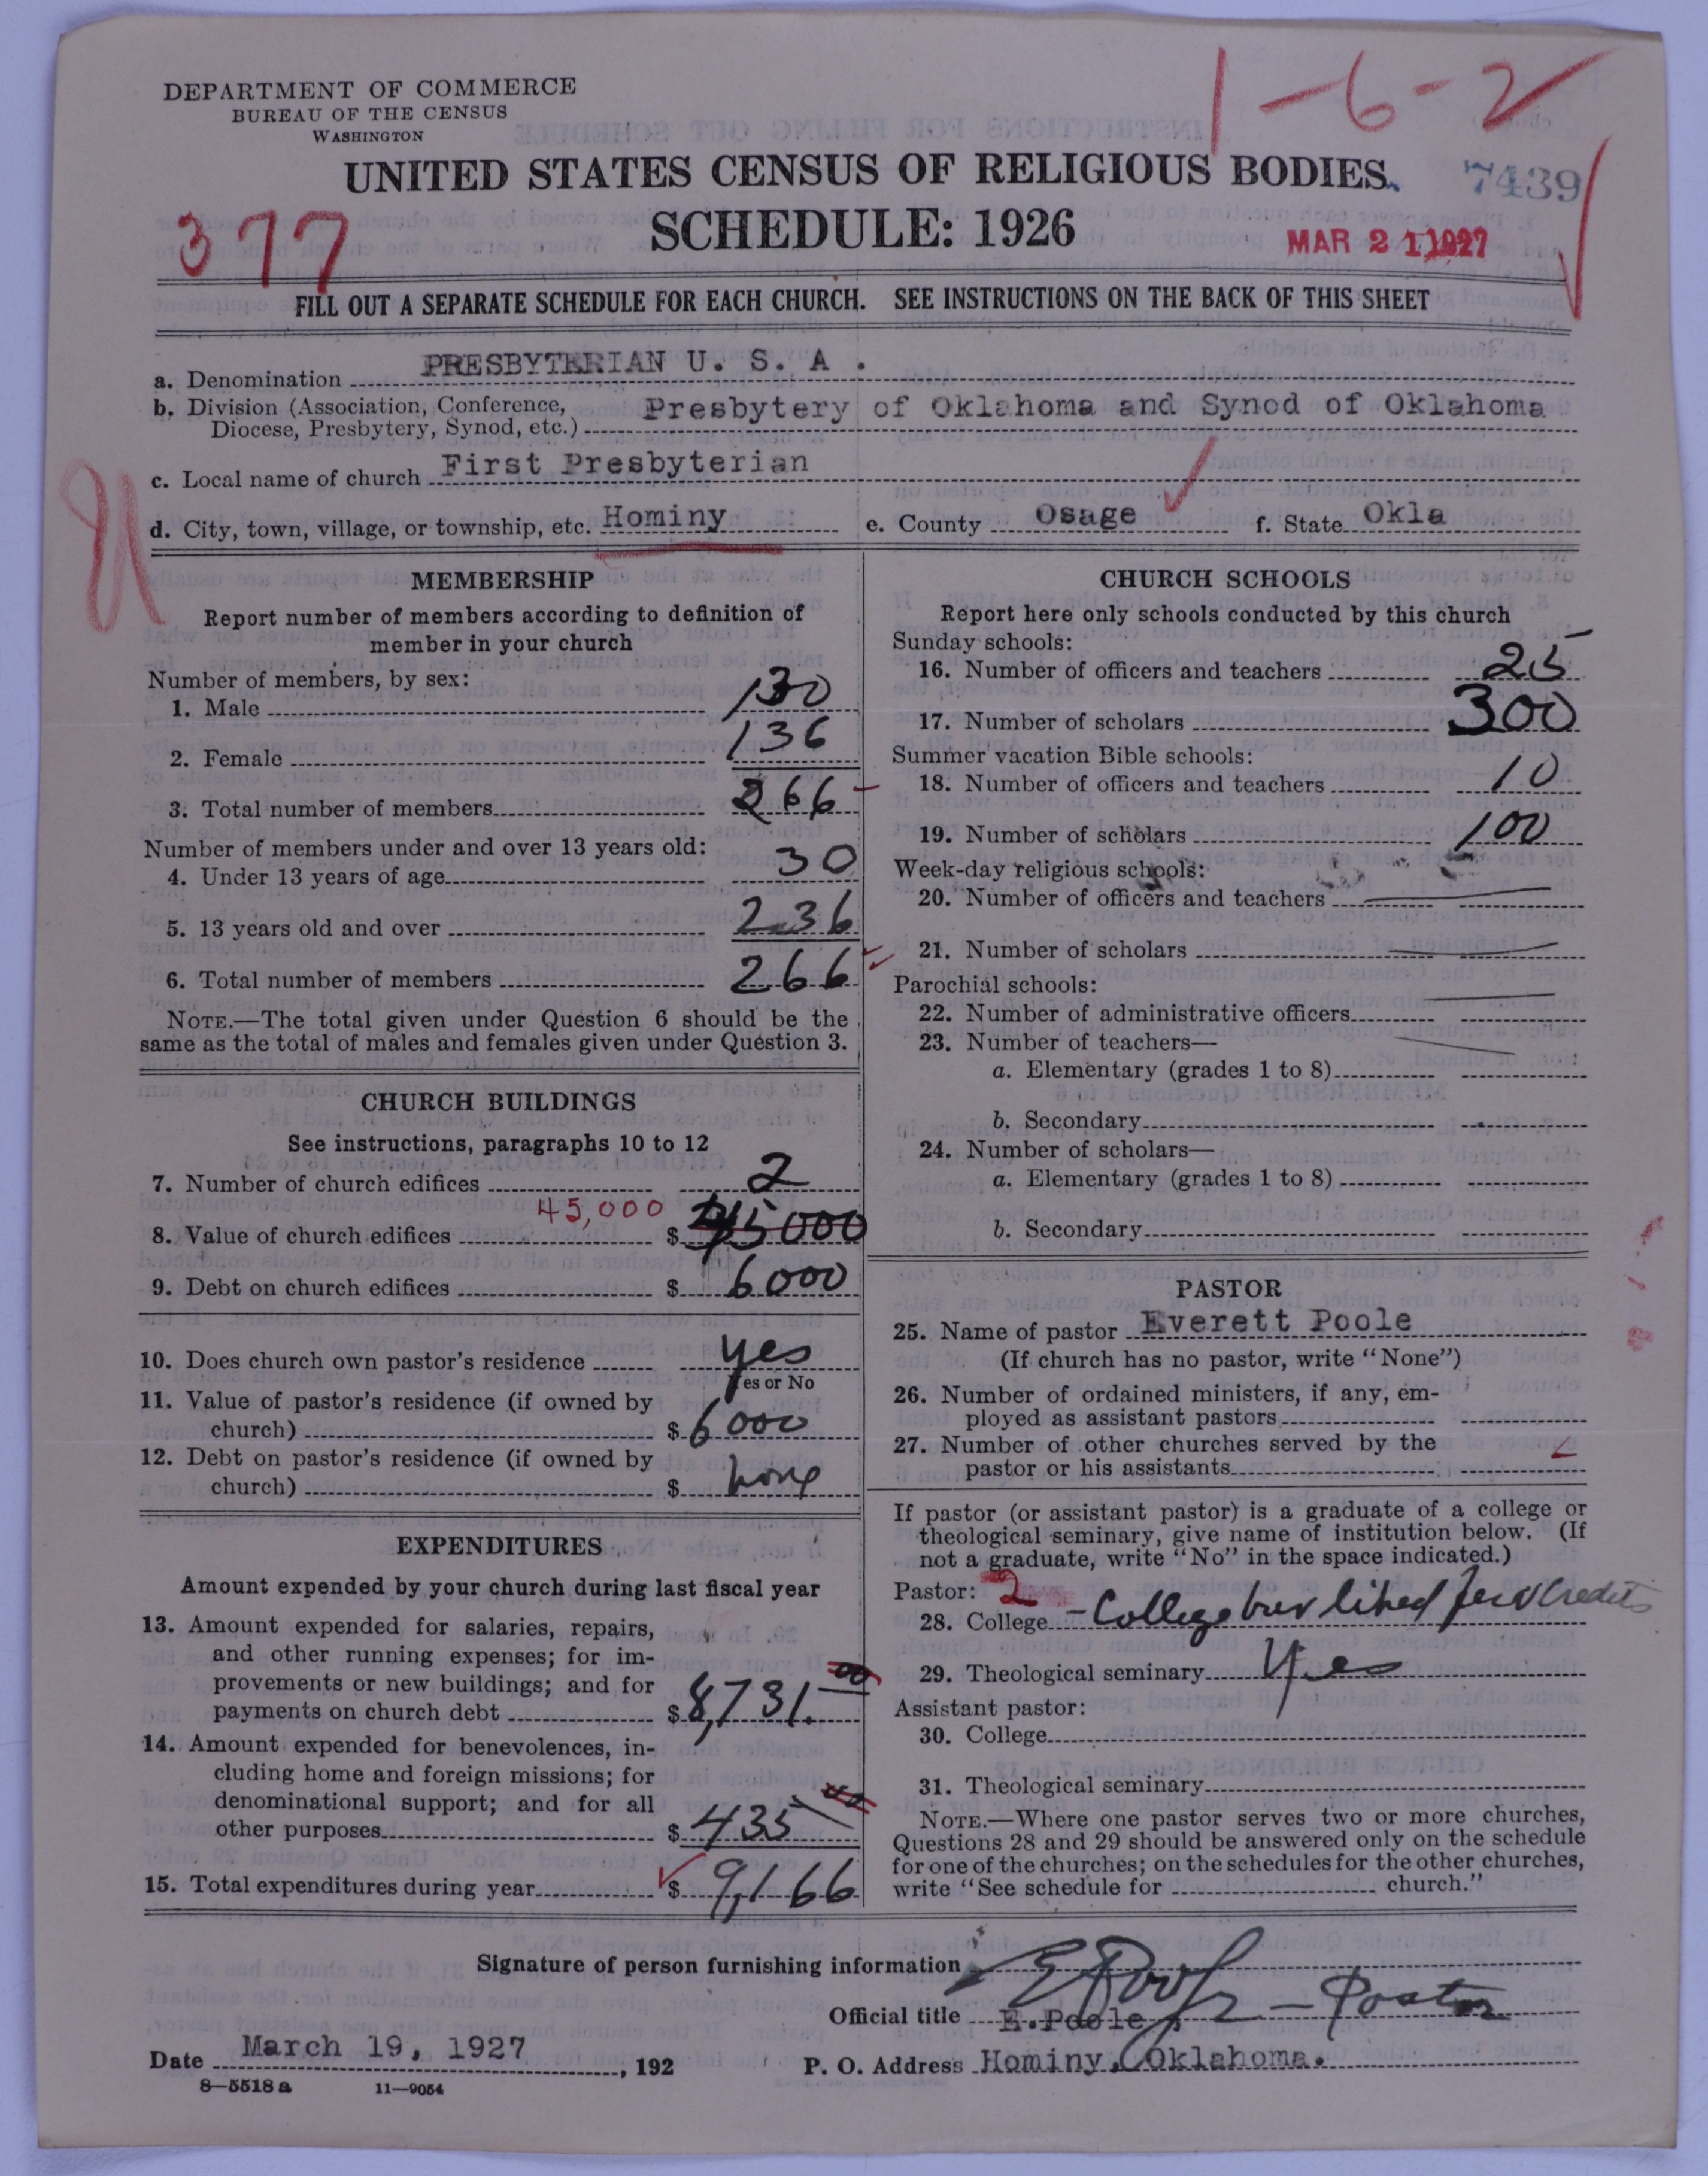 1-6-2
DEPARTMENT OF COMMERCE
BUREAU OF THE CENSUS
WASHINGTON
UNITED STATES CENSUS OF RELIGIOUS BODIES.
7439
377
SCHEDULE: 1926
MAR 21 1927
FILL OUT A SEPARATE SCHEDULE FOR EACH CHURCH. SEE INSTRUCTIONS ON THE BACK OF THIS SHEET
a. Denomination PRESBYTERIAN U. S. A.
b. Division (Association, Conference, Diocese, Presbytery, Synod, etc.) Presbytery of Oklahoma and Synod of Oklahoma
c. Local name of church First Presbyterian
d. City, town, village, or township, etc. Hominy e. County Osage f. State Okla
MEMBERSHIP
Report number of members according to definition of
member in your church
Number of members, by sex:
1. Male 130
2. Female 136
3. Total number of members 266
Number of members under and over 13 years old:
4. Under 13 years of age 30
5. 13 years old and over 236
6. Total number of members 266
NOTE.—The total given under Question 6 should be the
same as the total of males and females given under Question 3.
CHURCH BUILDINGS
See instructions, paragraphs 10 to 12
7. Number of church edifices 2
45,000
8. Value of church edifices $ 45000
9. Debt on church edifices $ 6000
10. Does church own pastor's residence yes
Yes or No
11. Value of pastor's residence (if owned by
church) $ 6000
12. Debt on pastor's residence (if owned by
church) $ none
EXPENDITURES
Amount expended by your church during last fiscal year
13. Amount expended for salaries, repairs,
and other running expenses; for im-
provements or new buildings; and for
payments on church debt $ 8,731.00
14. Amount expended for benevolences, in-
cluding home and foreign missions; for
denominational support; and for all
other purposes $ 435 00
15. Total expenditures during year $ 9,166
CHURCH SCHOOLS
Report here only schools conducted by this church
Sunday schools:
16. Number of officers and teachers 25
17. Number of scholars 300
Summer vacation Bible schools:
18. Number of officers and teachers 10
19. Number of scholars 100
Week-day religious schools:
20. Number of officers and teachers
21. Number of scholars
Parochial schools:
22. Number of administrative officers
23. Number of teachers—
a. Elementary (grades 1 to 8)
b. Secondary
24. Number of scholars—
a. Elementary (grades 1 to 8)
b. Secondary
PASTOR
25. Name of pastor Everett Poole
(If church has no pastor, write "None")
26. Number of ordained ministers, if any, em-
ployed as assistant pastors
27. Number of other churches served by the
pastor or his assistants
If pastor (or assistant pastor) is a graduate of a college or
theological seminary, give name of institution below. (If
not a graduate, write "No" in the space indicated.)
Pastor: 2
28. College - College but
29. Theological seminary Yes
Assistant pastor:
30. College
31. Theological seminary
NOTE.—Where one pastor serves two or more churches,
Questions 28 and 29 should be answered only on the schedule
for one of the churches; on the schedules for the other churches,
write "See schedule for church."
Signature of person furnishing information E Poole
Official title E. Poole, - Pastor
Date March 19, 1927, 192 P. O. Address Hominy, Oklahoma.
8-5518 a 11-9054